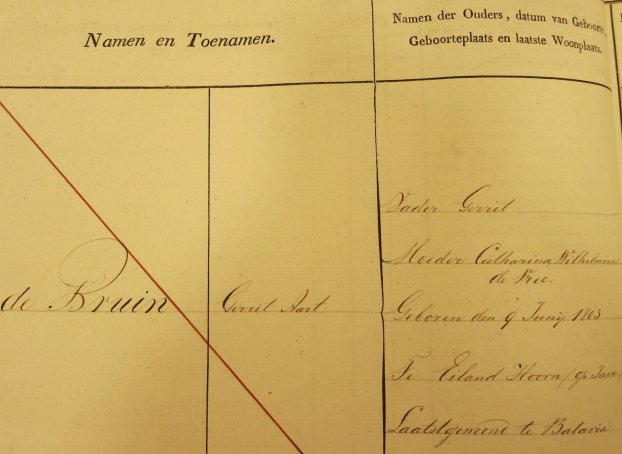 Namen en Toenamen.
Namen der Ouders, datum van Geboorte,
Geboorteplaats en laatste Woonplaats.
de Bruin
Gerrit Aart
Vader Gerrit
Moeder Catharina Wilhelmina
de Vree.
Geboren den 9 Junij 1863
Te Eiland Hoorn (op Java)
Laatstgewoond te Batavia